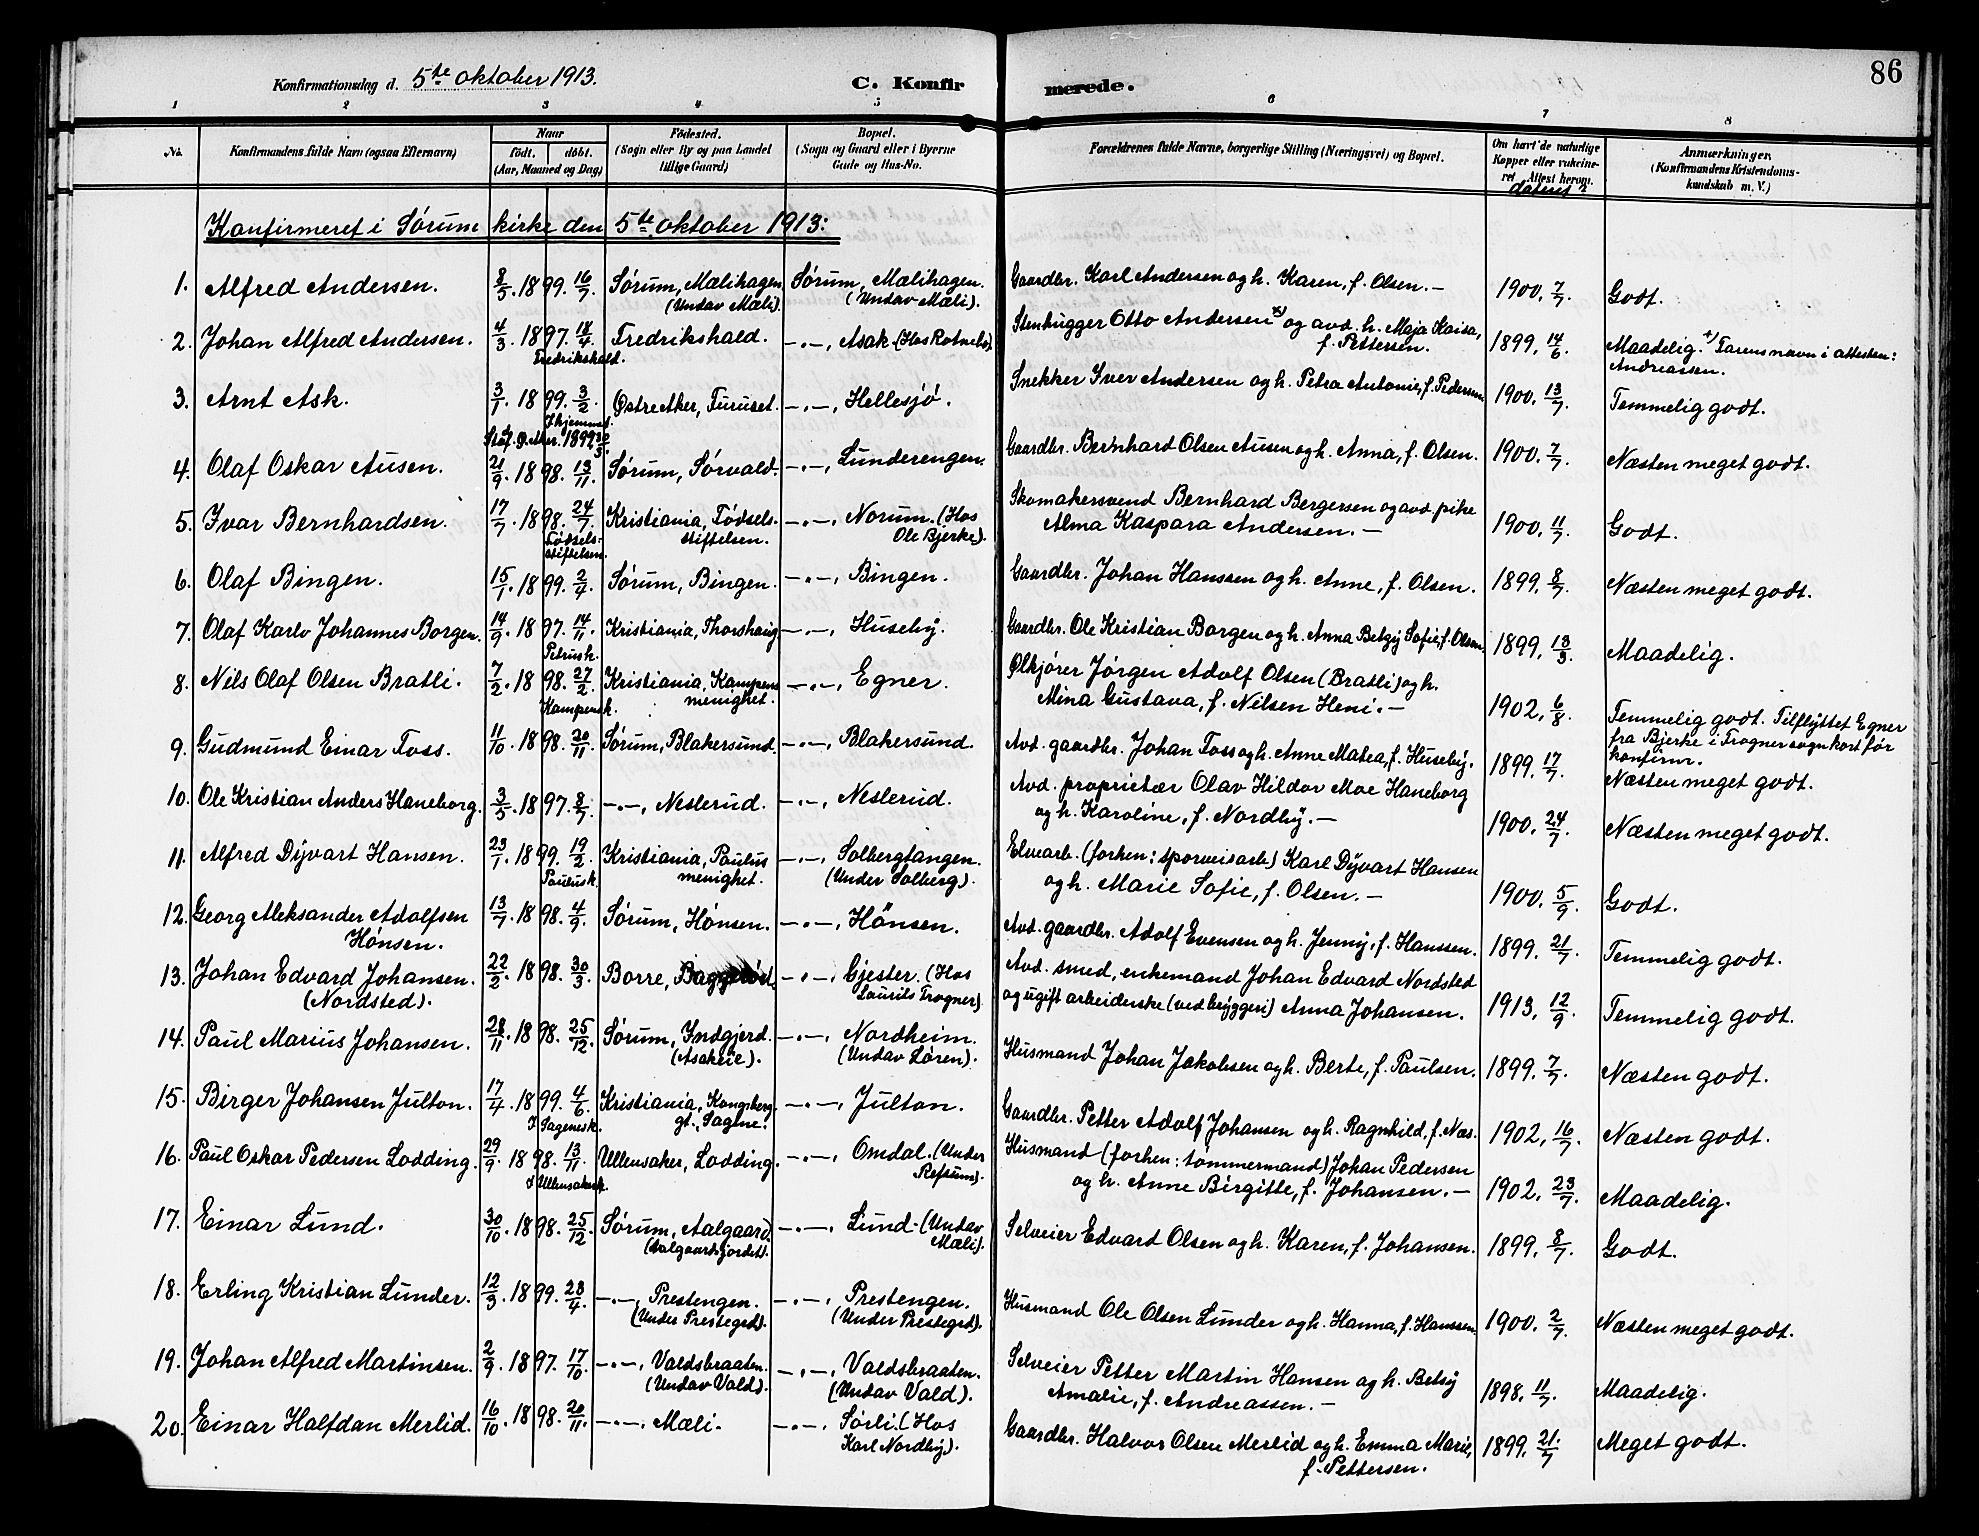 86
Konfirmationsdag d. 5te oktober 1913. C. Konfirmerede.
1 2 3 4 5 6 7 8
No. Konfirmandens fulde Navn (ogsaa Efternavn) Naar født. døbt. (Aar, Maaned og Dag) Fødested. (Sogn eller By og paa Landet tillige Gaard) Bopæl. (Sogn og Gaard eller i Byerne Gade og Hus-No. Forældrenes fulde Navne, borgerlige Stilling (Næringsvei) og Bopæl. Om havt de naturlige Kopper eller vakcineret. Attest herom, datus? Anmærkninger. (Konfirmandens Kristendomskundskab m. V.)
Konfirmeret i Sørum kirke den 5te oktober 1913:
1. Alfred Andersen. 8/5. 1899. 16/7. Sørum, Mælihagen (Undav Mæli). Sørum, Mælihagen. (Undav Mæli). Gaardbr. Karl Andersen og h. Karen, f. Olsen. — 1900, 7/7. Godt.
2. Johan Alfred Andersen. 4/3. 1897. 18/4. Fredrikshald. Fredrikshald. —"—, Asak (Hos Rotnebø). Stenhugger Otto Andersen x) og avd. h. Maja Kaisa, f. Pettersen. 1899, 14/6. Maadelig. x) Farens navn i attesten: Andreassen.
3. Arnt Ask. 3/1. 1899. 3/2. Hjemmed. Stadf. Ø. Aker. 1899 30/3. Østre Aker, Furuset. —"—, Hellesjø. Snekker Iver Andersen og h. Petra Antonie, f. Pedersen. 1900, 13/7. Temmelig godt.
4. Olaf Oskar Ausen. 21/9. 1898. 13/11. Sørum, Sørvald. —"—, Lunderengen. Gaardbr. Bernhard Olsen Ausen og h. Anna, f. Olsen. 1900, 7/7. Næsten meget godt.
5. Ivar Bernhardsen. 17/7. 1898. 24/7. Fødselsstiftelsen. Kristiania, Fødselsstiftelsen. —"—, Norum. (Hos Ole Bjerke). Skomakersvend Bernhard Bergersen og avd. pike Alma Kaspara Andersen. — 1900, 11/7. Godt.
6. Olaf Bingen. 15/1. 1899. 2/4. Sørum, Bingen. —"—, Bingen. Gaardbr. Johan Hanssen og h. Anne, f. Olsen. 1899, 8/7. Næsten meget godt.
7. Olaf Karlo Johannes Borgen. 19/9. 1897. 14/11. Petrusk. Kristiania, Thorshaug —"—, Huseby. Gaardbr. Ole Kristian Borgen og h. Anna Betzy Sofie, f. Olsen. 1899, 13/3. Maadelig.
8. Nils Olaf Olsen Bratli. 7/2. 1898. 27/2. Kampensk. Kristiania, Kampens menighet. —"—, Egner. Ølkjører Jørgen Adolf Olsen (Bratli) og h. Mina Gustava, f. Nilsen Heni. — 1902, 6/8. Temmelig godt. Tilflyttet Egner fra Bjerke i Frogner sogn kort før konfirm.
9. Gudmund Einar Foss. 11/10. 1898. 20/11. Sørum, Blakersund. —"—, Blakersund. Avd. gaardbr. Johan Foss og h. Anne Matea, f. Huseby. 1899, 17/7. Næsten meget godt.
10. Ole Kristian Anders Haneborg. 3/5. 1897. 8/7. —"—, Neslerud. —"—, Neslerud. Avd. proprietær Olav Hildor Moe Haneborg og h. Karoline, f. Nordby. — 1900, 24/7. Næsten meget godt.
11. Alfred Dyvart Hansen. 23/1. 1899. 19/2. Paulusk. Kristiania, Paulus menighet. —"—, Solbergtangen. (Under Solberg). Elvearb. (forhen: sporveisarb.) Karl Dyvart Hansen og h. Marie Sofie, f. Olsen. — 1900, 5/9. Godt.
12. Georg Aleksander Adolfsen Hønsen. 13/7. 1898. 4/9. Sørum, Hønsen. —"—, Hønsen. Avd. gaardbr. Adolf Evensen og h. Jenny, f. Hanssen. 1899, 21/7. Temmelig godt.
13. Johan Edvard Johansen. (Nordsted). 22/2. 1898. 30/3. Borre, —"—, Gjester. (Hos Laurits Frogner). Avd. smed, enkemand Johan Edvard Nordsted og ugift arbeiderske (ved bryggeri) Anna Johansen. 1913, 12/9. Temmelig godt.
14. Paul Marius Johansen. 28/11. 1898. 25/12. Sørum, Indgjerd. (Asakeie). —"—, Nordheim. (Undav Løren). Husmand Johan Jakobsen og h. Berte, f. Paulsen. 1899. 7/7. Næsten godt.
15. Birger Johansen Julton. 17/4. 1899. 4/6. I Sagenesk. Kristiania, Kongsberg gt., Sagene. —"—, Julton. Gaardbr. Petter Adolf Johansen og h. Ragnhild, f. Næs. 1902, 16/7. Næsten godt.
16. Paul Oskar Pedersen Lodding. 29/9. 1898. 13/11. I Ullensakerk. Ullensaker, Lodding. —"—, Omdal. (Under Refsum). Husmand (forhen: tømmermand) Johan Pedersen og h. Anne Birgitte, f. Johansen. — 1902, 23/7. Maadelig.
17. Einar Lund. 30/10. 1898. 25/12. Sørum, Aalgaard. (Aalgaardsjordet). —"—, Lund. (Undav Mæli). Selveier Edvard Olsen og h. Karen, f. Johansen. 1899, 8/7. Godt.
18. Erling Kristian Lunder. 12/3. 1899. 23/4. —"—, Prestengen. (Under Prestegrd). —"—, Prestengen. (Under Prestegrd). Husmand Ole Olsen Lunder og h. Hanna, f. Hanssen. 1900, 2/7. Næsten meget godt.
19. Johan Alfred Martinsen. 2/9. 1897. 17/10. —"—, Valdsbraaten. (Undav Vald). —"—, Valdsbraaten. (Undav Vald). Selveier Petter Martin Hansen og h. Betsy Amalie, f. Andreassen. — 1898, 11/7. Maadelig.
20. Einar Halfdan Merlid. 16/10. 1898. 20/11. —"—, Mæli. —"—, Sørli. (Hos Karl Nordby). Gaardbr. Halvor Olsen Merlid og h. Emma Marie, f. Pettersen. 1899, 21/7. Meget godt.